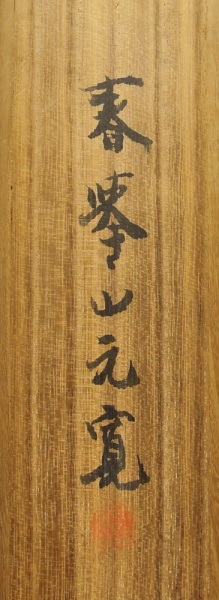 春峯山元寛